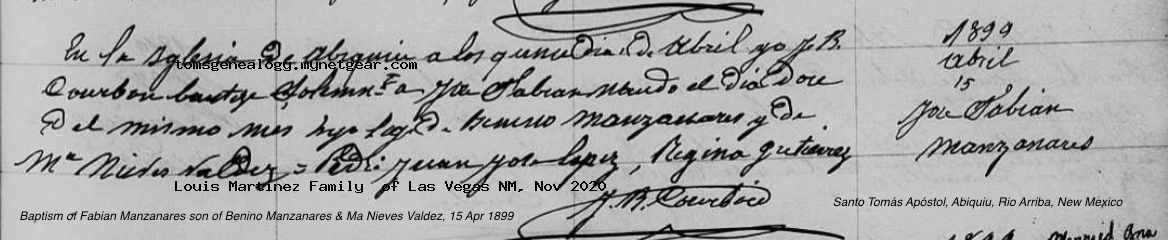 En la Iglesia de Abiquiu a los quince dias de Abril yo J. B.
tomsgenealogg.mynetgear.com
Courbon bautize Solemn.te a Jose Fabian nacido el dia doce
del mismo mes hijo leg. de Benino Manzanares y de
Ma Nieves Valdez = Padri: Juan Jose Lopez, Regina Gutierrez
Louis Martinez Family of Las Vegas NM, Nov 2020
J. B. Courbon
1899
Abril
15
Jose Fabian
Manzanares
Baptism of Fabian Manzanares son of Benino Manzanares & Ma Nieves Valdez, 15 Apr 1899
Santo Tomás Apóstol, Abiquiu, Rio Arriba, New Mexico
1899